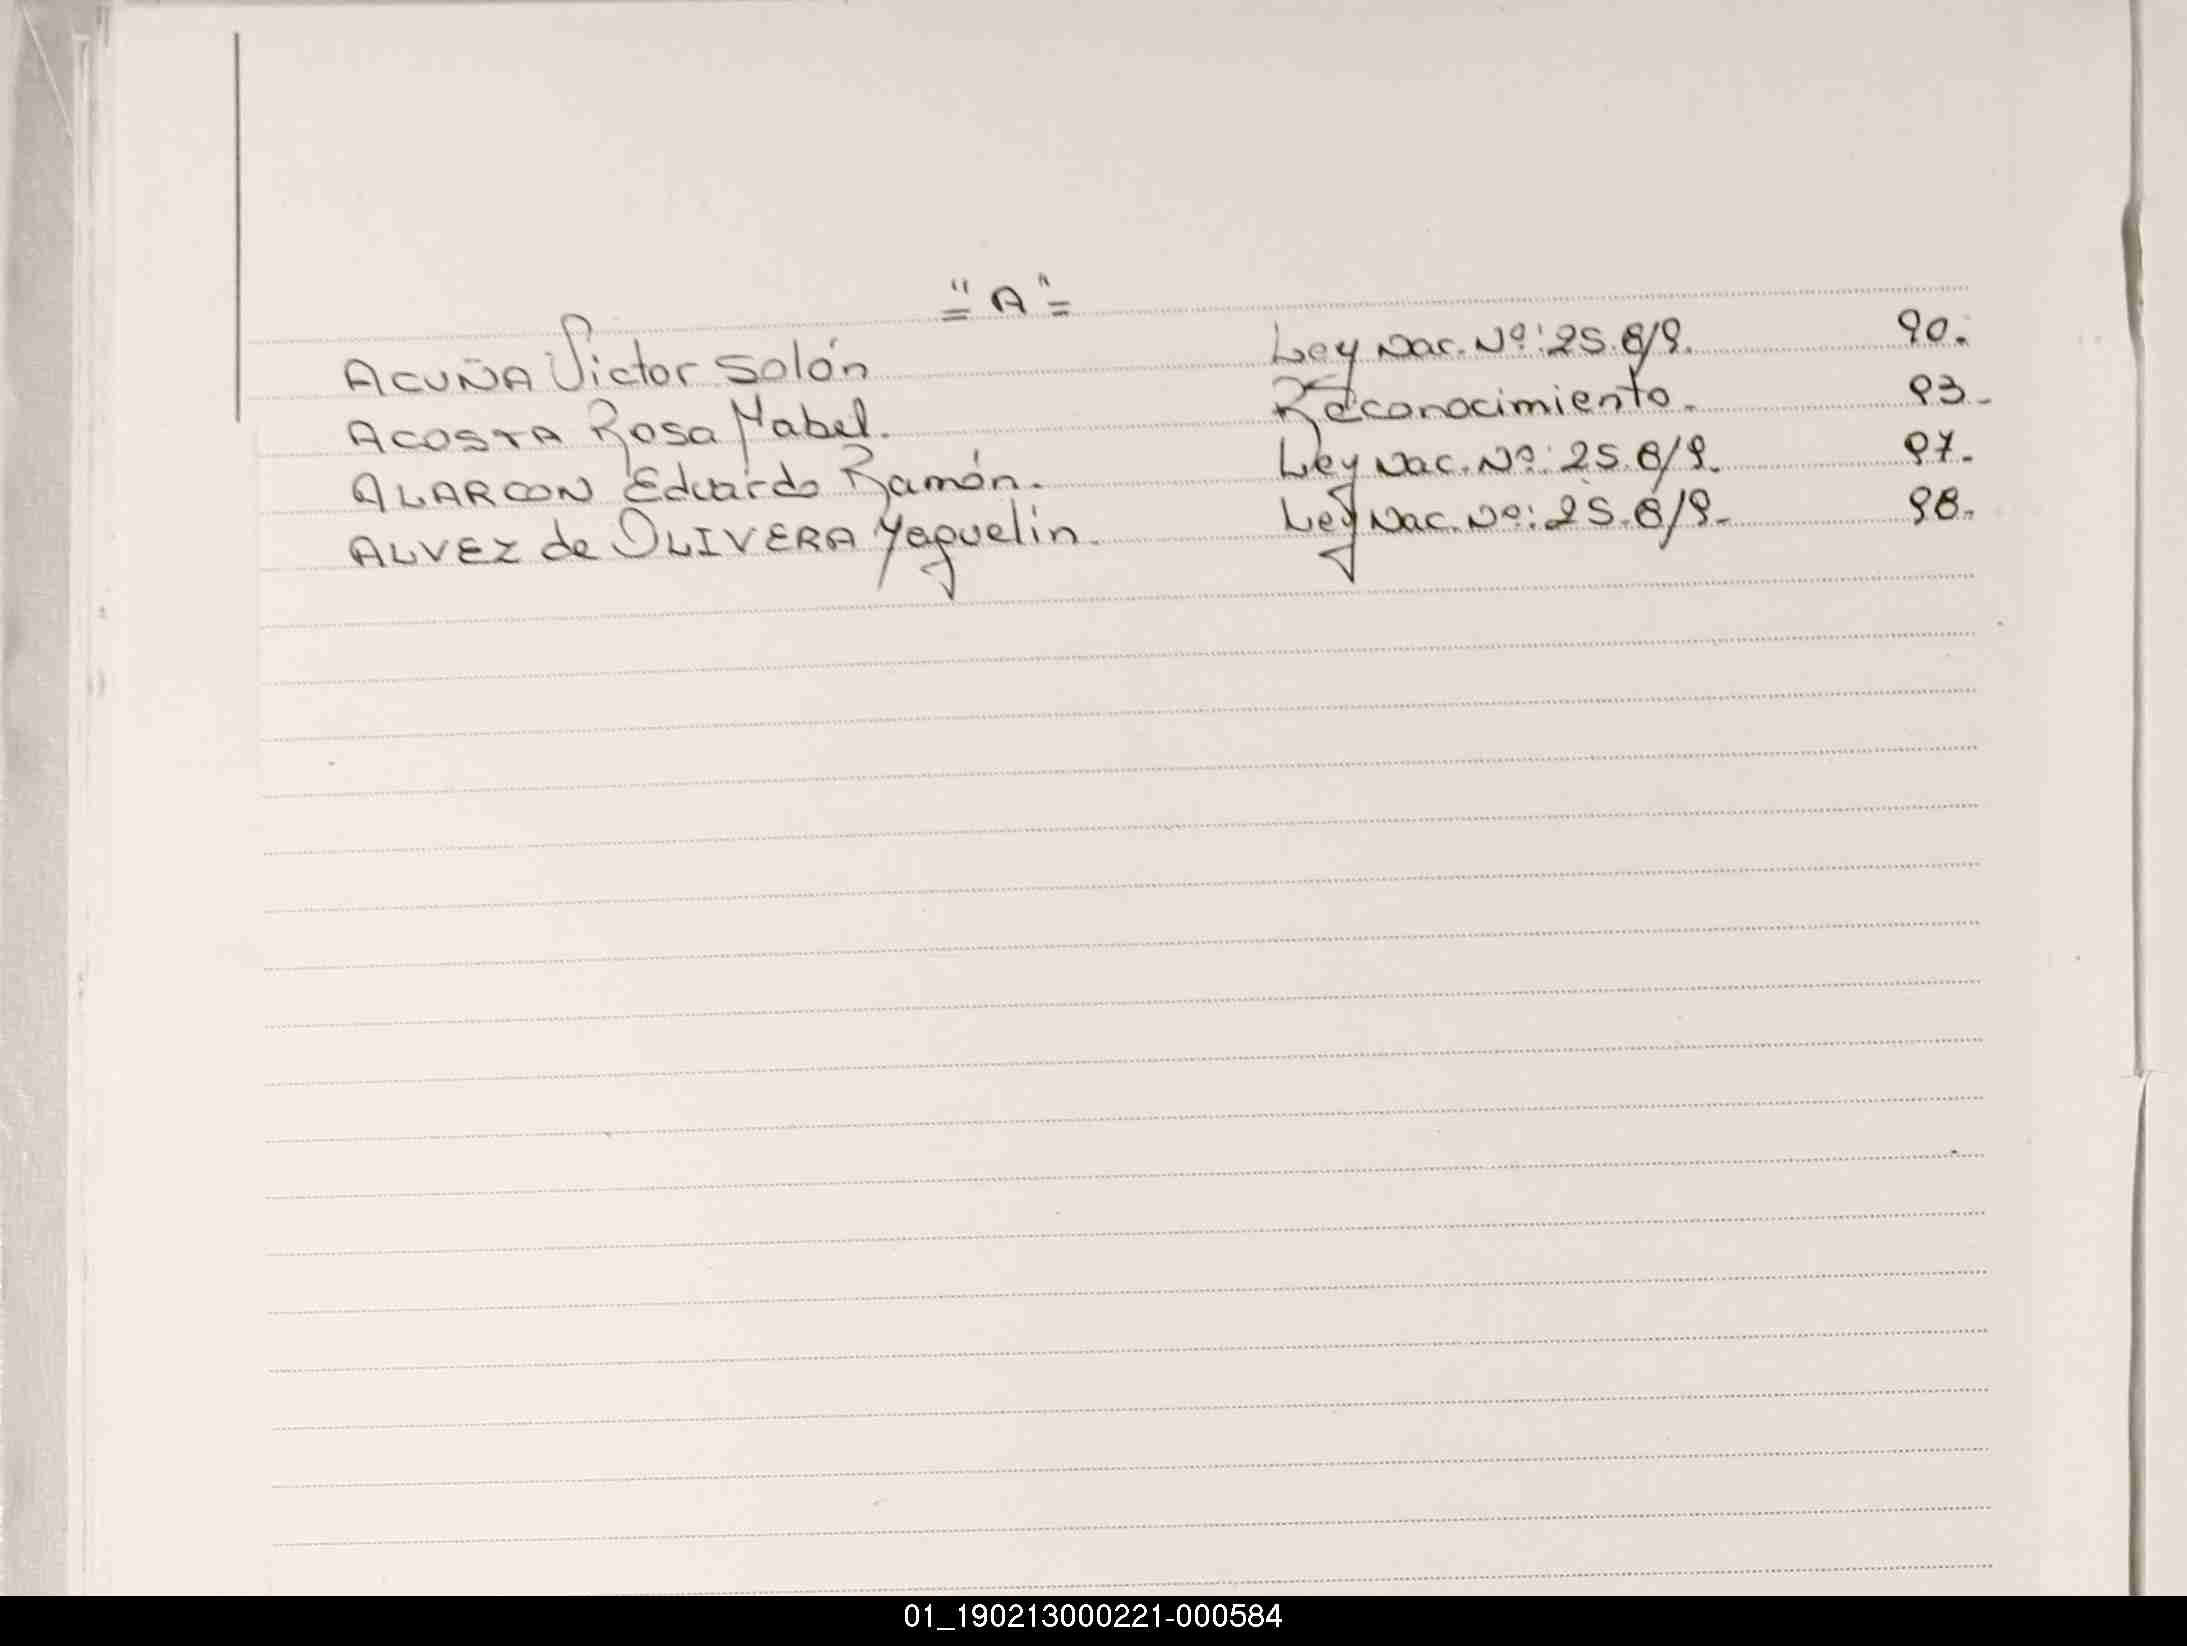 ="A"=
ACUÑA Victor Solón Ley Nac. Nº: 25.819. 90.
ACOSTA Rosa Mabel. Reconocimiento. 93.
ALARCON Eduardo Ramón. Ley Nac. Nº: 25.819. 97.
ALVEZ de OLIVERA Yaquelin. Ley Nac. Nº: 25.819. 98.
01_190213000221-000584